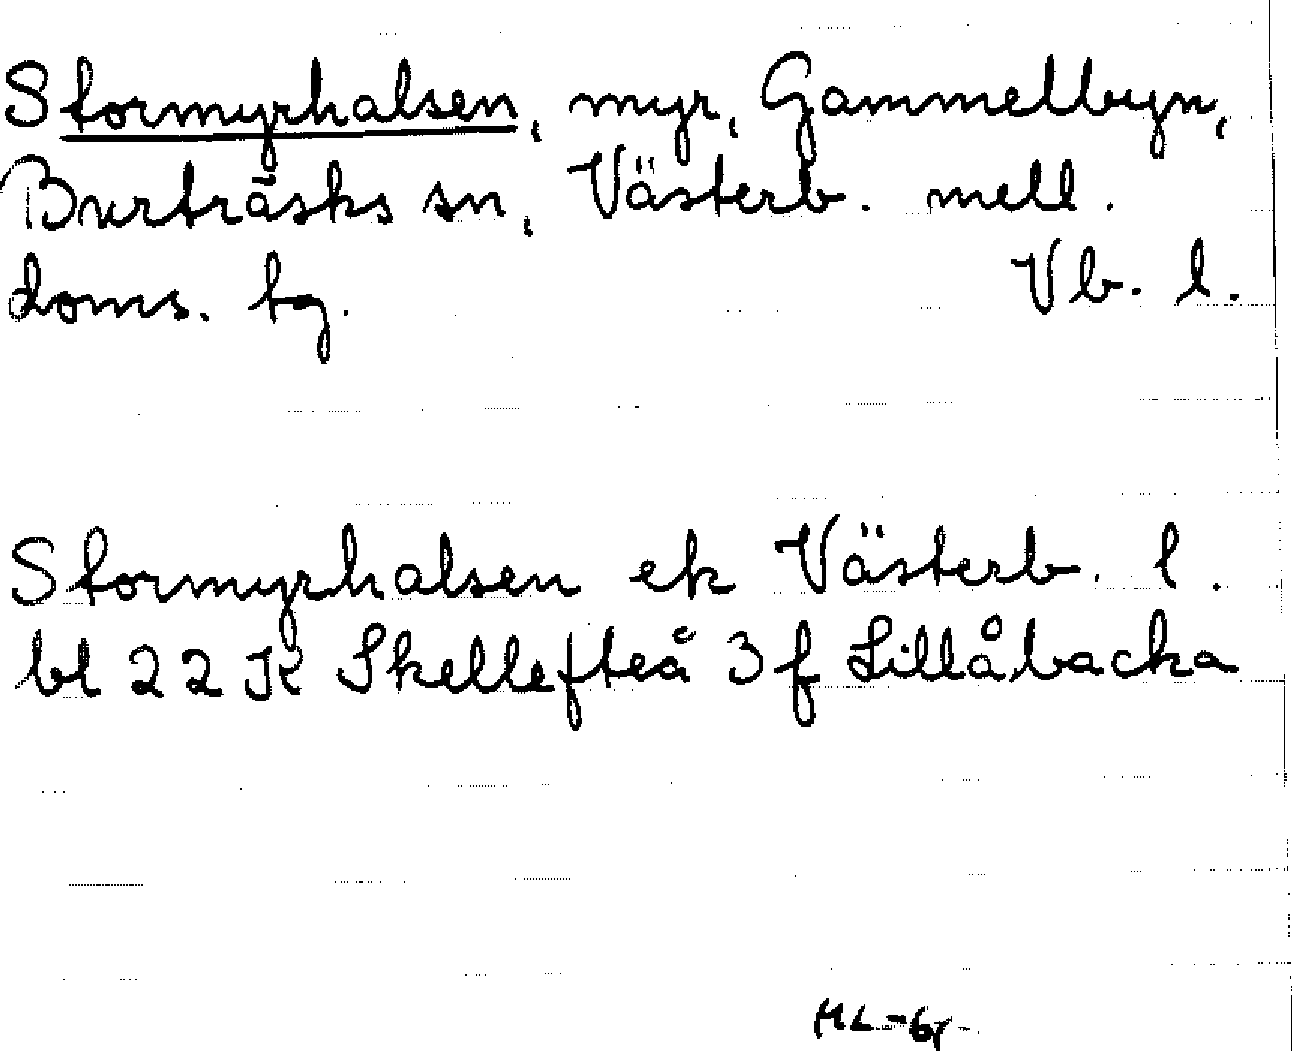 Stormyrhalsen, myr, Gammelbyn,
Burträsks sn, Västerb. mell.
doms. tg. Vb. l.
Stormyrhalsen ek Västerb. l.
bl 22 K Skellefteå 3 f Lillåbacka